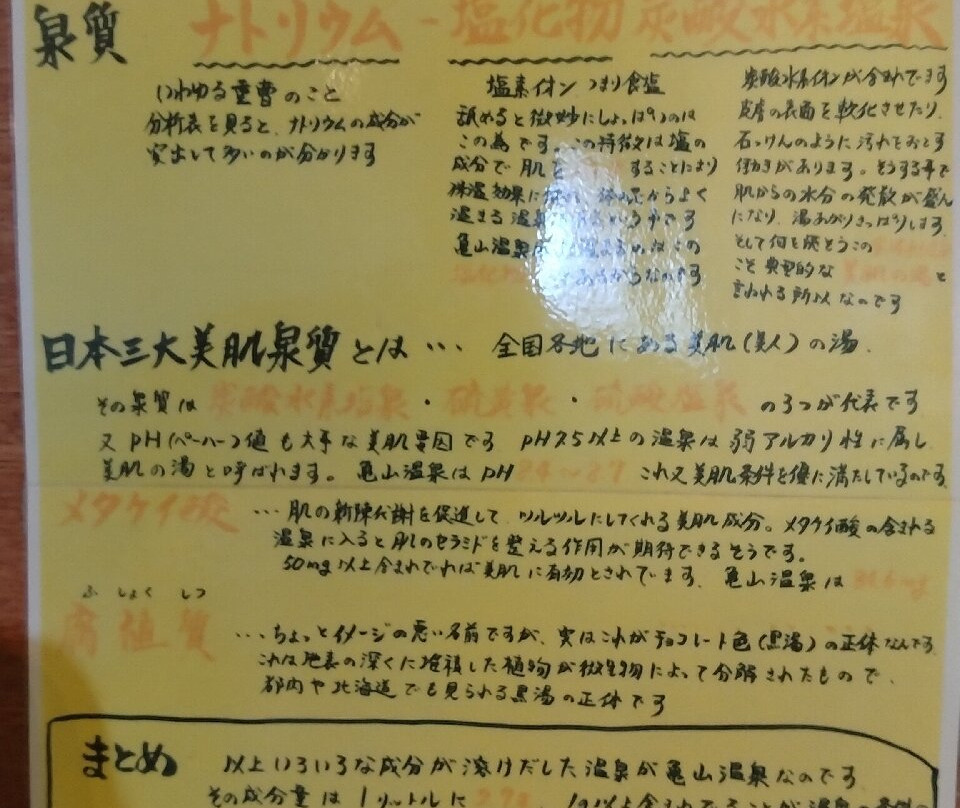 泉質 ナトリウム - 塩化物 炭酸水素塩泉
いわゆる重曹のこと
分析表を見ると、ナトリウムの成分が
突出して多いのが分かります
塩素イオン つまり食塩
舐めると微妙にしょっぱいのは
この為です。この特徴は塩の
成分で肌を することにより
保温効果に 体の芯からよく
温まる温泉
亀山温泉
塩化物 あるからなのです
炭酸水素イオンが含まれてます
皮膚の表面を軟化させたり、
石っけんのように汚れをおとす
働きがあります。そうする事で
肌からの水分の発散が盛ん
になり、湯あがりさっぱりします。
そして何を隠そうこの
こそ典型的な 美肌の湯と
言われる所以なのです
日本三大美肌泉質とは… 全国各地にある美肌(美人)の湯.
その泉質は 炭酸水素塩泉・硫黄泉・硫酸塩泉 の3つが代表です
又 pH(ペーハー)値も大事な美肌要因です pH7.5以上の温泉は弱アルカリ性に属し
美肌の湯と呼ばれます。亀山温泉はpH 8.4~8.7 これ又美肌条件を優に満たしているのです
メタケイ酸 …肌の新陳代謝を促進して、ツルツルにしてくれる美肌成分。メタケイ酸の含まれる
温泉に入ると肌のセラミドを整える作用が期待できるそうです。
50mg以上含まれていれば美肌に有効とされています、亀山温泉は
ふしょくしつ
腐植質 …ちょっとイメージの悪い名前ですが、実はこれがチョコレート色(黒湯)の正体なんです
これは地表の深くに堆積した植物が微生物によって分解されたもので、
都内や北海道でも見られる黒湯の正体です
まとめ 以上いろいろな成分が溶けだした温泉が亀山温泉なのです
その成分量は1リットルに